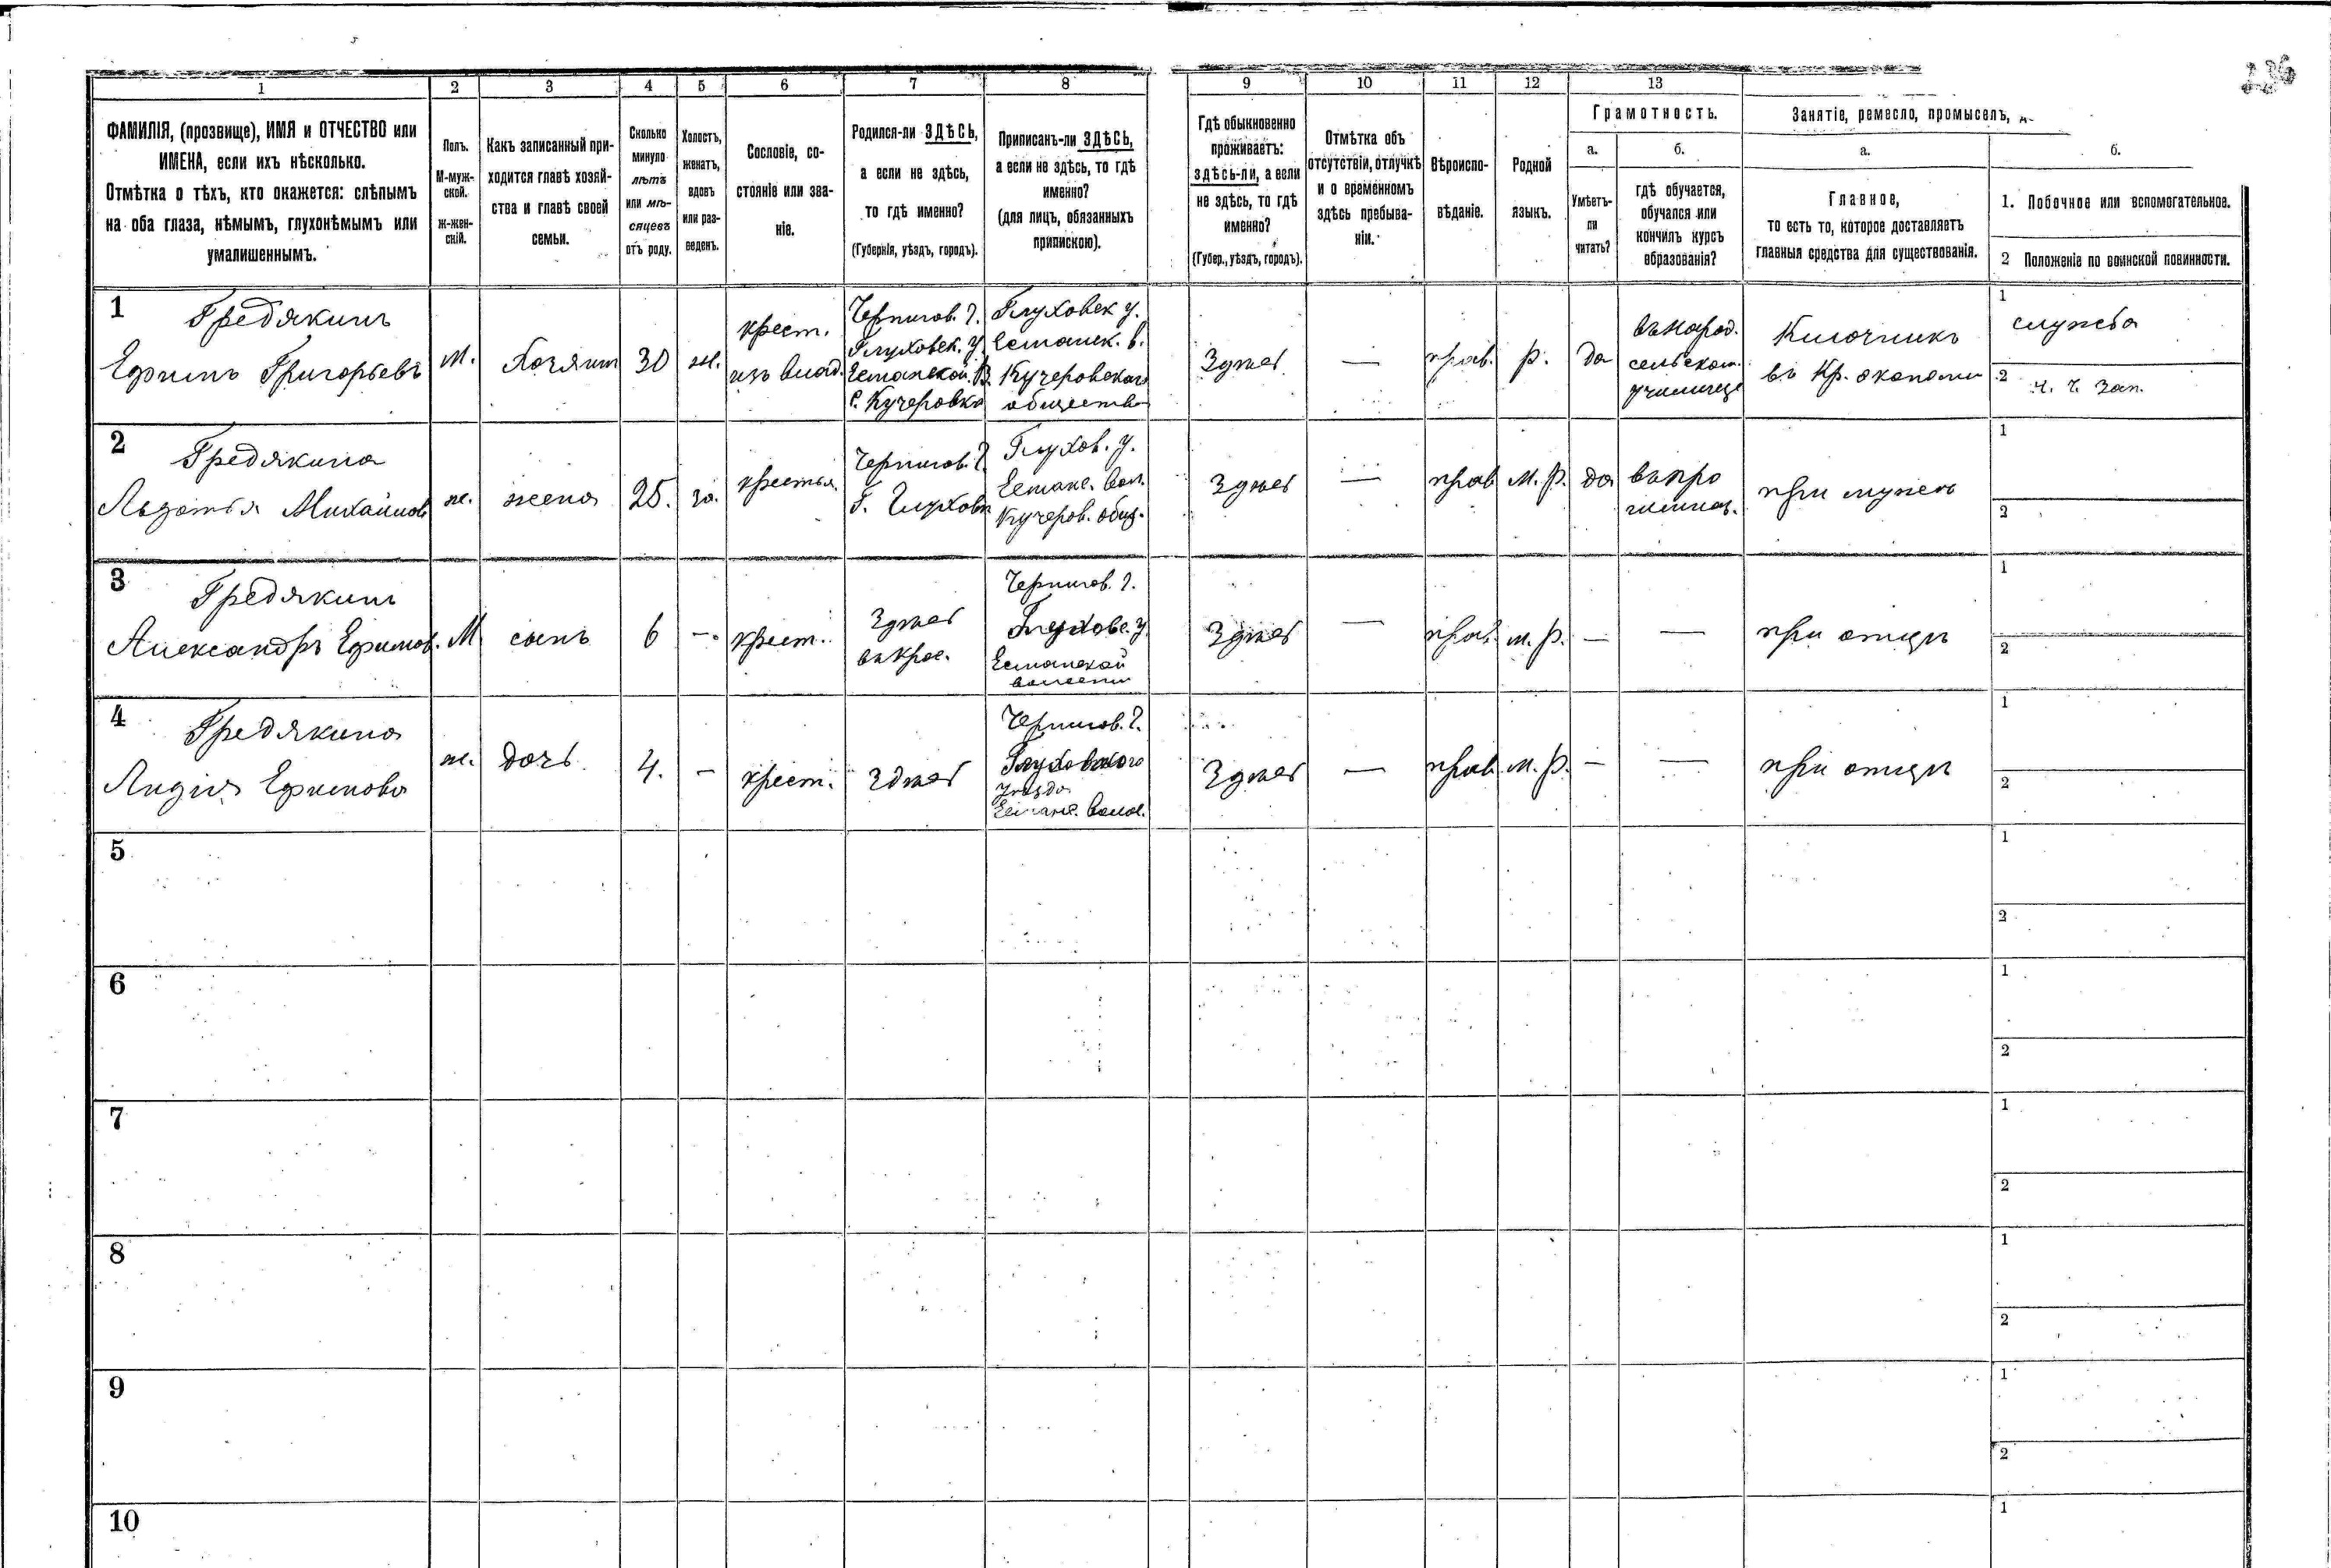 236
1 2 3 4 5 6 7 8 9 10 11 12 13
ФАМИЛІЯ, (прозвище), ИМЯ и ОТЧЕСТВО или
ИМЕНА, если ихъ нѣсколько.
Отмѣтка о тѣхъ, кто окажется: слѣпымъ
на оба глаза, нѣмымъ, глухонѣмымъ или
умалишеннымъ.
Полъ.
М-муж-
ской.
ж-жен-
скій.
Какъ записанный при-
ходится главѣ хозяй-
ства и главѣ своей
семьи.
Сколько
минуло
лѣтъ
или мѣ-
сяцевъ
отъ роду.
Холостъ,
женатъ,
вдовъ
или раз-
веденъ.
Сословіе, со-
стояніе или зва-
ніе.
Родился-ли ЗДѢСЬ,
а если не здѣсь,
то гдѣ именно?
(Губернія, уѣздъ, городъ).
Приписанъ-ли ЗДѢСЬ,
а если не здѣсь, то гдѣ
именно?
(для лицъ, обязанныхъ
припискою).
Гдѣ обыкновенно
проживаетъ:
здѣсь-ли, а если
не здѣсь, то гдѣ
именно?
(Губер., уѣздъ, городъ).
Отмѣтка объ
отсутствіи, отлучкѣ
и о временномъ
здѣсь пребыва-
ніи.
Вѣроиспо-
вѣданіе.
Родной
языкъ.
Грамотность.
а.
Умѣетъ-
ли
читать?
б.
гдѣ обучается,
обучался или
кончилъ курсъ
образованія?
Занятіе, ремесло, промыселъ,
а.
Главное,
то есть то, которое доставляетъ
главныя средства для существованія.
б.
1. Побочное или вспомогательное.
2 Положеніе по воинской повинности.
1
Гредякинъ
Ефимъ Григорьевъ
м.
Хозяинъ
30
ж.
крест.
изъ влад.
Чернигов. г.
Глуховск. у.
Есманской В
с. Кучеровка
Глуховск у.
Есманск. в.
Кучеровскаго
общества
Здѣсь
—
прав.
р.
да
въ народ.
сельском.
училище
Ключникъ
въ Кр. экономи
1
служба
2
ч. ч. зап.
2
Гредякина
Авдотья Михайлов
ж.
жена
25.
за.
крестья.
Чернигов. г.
г. Глуховъ
Глухов. у.
Есманс. вол.
Кучеров. общ.
Здѣсь
—
прав
м. р.
да
въ про
гимназ.
при мужѣ
1
2
3
Гредякинъ
Александръ Ефимов.
М
сынъ
6
—
крест.
Здѣсь
Чернигов. г.
Глуховс. у
Есманской
волости
Здѣсь
—
прав.
м. р.
—
—
при отцѣ
1
2
4
Гредякина
Лидія Ефимова
ж.
дочь
4.
—
крест.
Здѣсь
Чернигов. г.
Глуховскаго
уѣзда
Есманс. волос.
Здѣсь
—
прав.
м. р.
—
—
при отцѣ
1
2
5
1
2
6
1
2
7
1
2
8
1
2
9
1
2
10
1